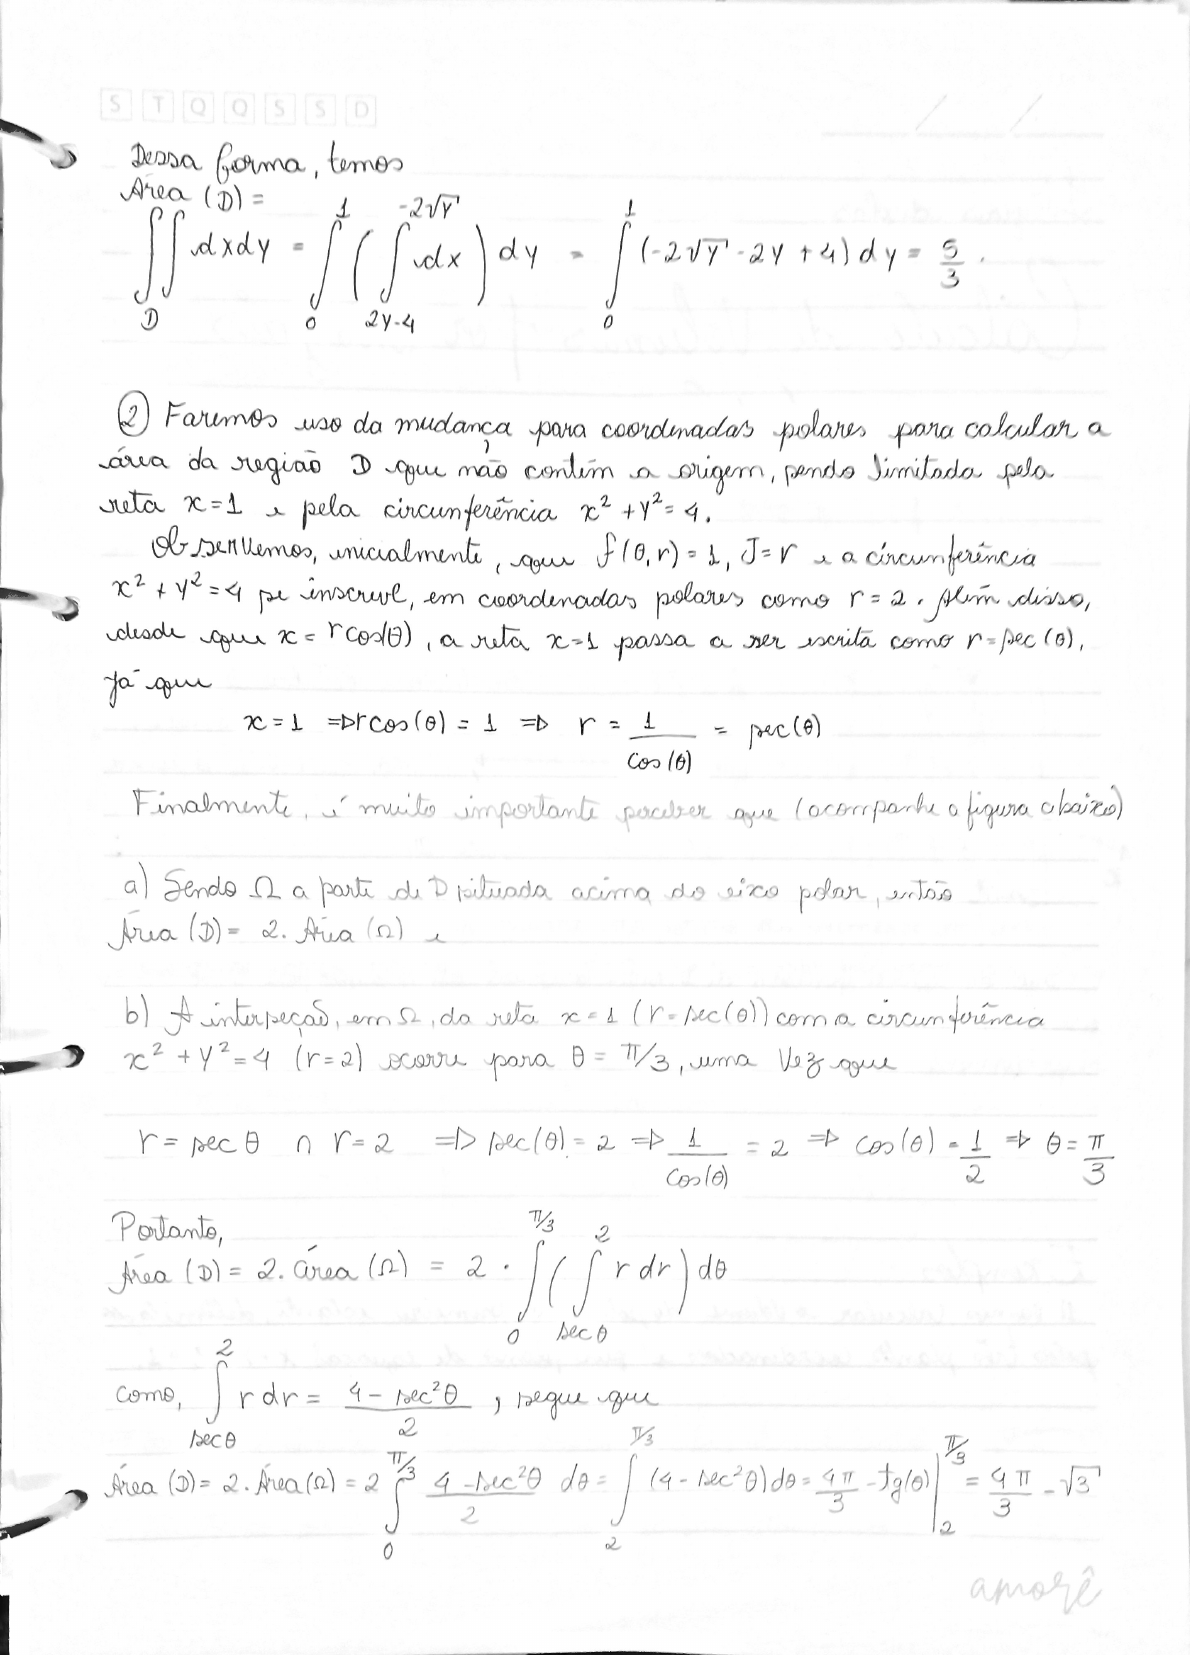 S T Q Q S S D
Dessa forma, temos
Área (D) =
∬_D dxdy = ∫_0^1 ( ∫_{2y-4}^{-2√y} dx ) dy = ∫_0^1 (-2√y - 2y + 4) dy = 5/3.
② Faremos uso da mudança para coordenadas polares para calcular a
área da região D que não contém a origem, sendo limitada pela
reta x=1 e pela circunferência x² + y² = 4.
Observemos, inicialmente, que f(θ,r) = 1, J=r e a circunferência
x² + y² = 4 se inscreve, em coordenadas polares como r = 2. Além disso,
desde que x = rcos(θ), a reta x=1 passa a ser escrita como r=sec(θ),
já que
x = 1 ⇒ rcos(θ) = 1 ⇒ r = 1/cos(θ) = sec(θ)
Finalmente, é muito importante perceber que (acompanhe a figura abaixo)
a) Sendo Ω a parte de D situada acima do eixo polar, então
Área (D) = 2. Área (Ω) e
b) A interseção, em Ω, da reta x = 1 (r = sec(θ)) com a circunferência
x² + y² = 4 (r=2) ocorre para θ = π/3, uma vez que
r = sec θ ∩ r = 2 ⇒ sec(θ) = 2 ⇒ 1/cos(θ) = 2 ⇒ cos(θ) = 1/2 ⇒ θ = π/3
Portanto,
Área (D) = 2. área (Ω) = 2 · ∫_0^{π/3} ( ∫_{sec θ}^2 r dr ) dθ
como, ∫_{sec θ}^2 r dr = (4 - sec²θ)/2, segue que
Área (D) = 2. Área(Ω) = 2 ∫_0^{π/3} (4 - sec²θ)/2 dθ = ∫_2^{π/3} (4 - sec²θ) dθ = 4π/3 - tg(θ) |_2^{π/3} = 4π/3 - √3
amorê